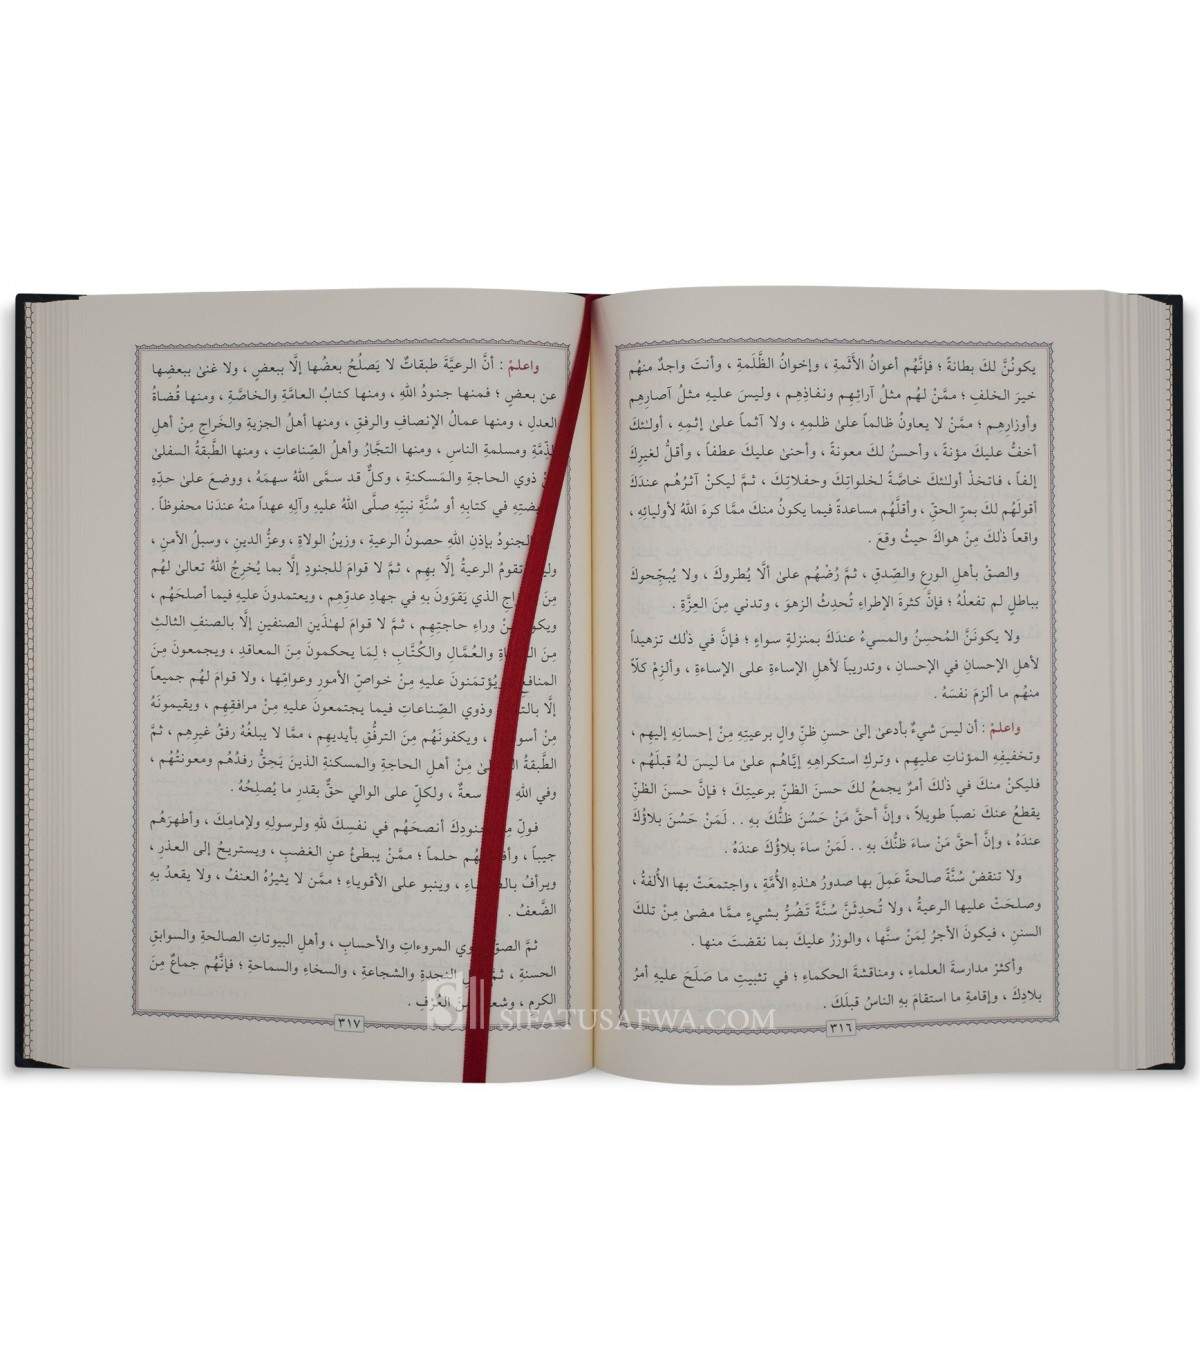 يكونُنَّ لكَ بطانةً ؛ فإنَّهُم أعوانُ الأَثَمةِ ، وإخوانُ الظَّلَمةِ ، وأنتَ واجدٌ منهُم
خيرَ الخلفِ ؛ ممَّنْ لهُم مثلُ آرائِهِم ونفاذِهِم ، وليسَ عليهِ مثلُ آصارِهِم
وأوزارِهِم ؛ ممَّنْ لا يعاونُ ظالماً علىٰ ظلمِهِ ، ولا آثماً علىٰ إثمِهِ ، أولـٰئكَ
أخفُّ عليكَ مؤنةً ، وأحسنُ لكَ معونةً ، وأحنىٰ عليكَ عطفاً ، وأقلُّ لغيرِكَ
إلفاً ، فاتخذْ أولـٰئكَ خاصَّةً لخلواتِكَ وحفلاتِكَ ، ثمَّ ليكنْ آثرُهُم عندَكَ
أقولَهُم لكَ بمرِّ الحقِّ ، وأقلَّهُم مساعدةً فيما يكونُ منكَ ممَّا كرهَ اللهُ لأوليائِهِ ،
واقعاً ذٰلكَ مِنْ هواكَ حيثُ وقعَ .
والصقْ بأهلِ الورعِ والصِّدقِ ، ثمَّ رُضْهُم علىٰ ألَّا يُطروكَ ، ولا يُبجِّحوكَ
بباطلٍ لم تفعلْهُ ؛ فإنَّ كثرةَ الإطراءِ تُحدِثُ الزهوَ ، وتدني مِنَ العِزَّةِ .
ولا يكونَنَّ المُحسِنُ والمسيءُ عندَكَ بمنزلةٍ سواءٍ ؛ فإنَّ في ذٰلك تزهيداً
لأهلِ الإحسانِ في الإحسانِ ، وتدريباً لأهلِ الإساءةِ على الإساءةِ ، وألزِمْ كلّاً
منهُم ما ألزمَ نفسَهُ .
واعلمْ : أن ليسَ شيءٌ بأدعىٰ إلىٰ حسنِ ظنِّ والٍ برعيتِهِ مِنْ إحسانِهِ إليهِم ،
وتخفيفِهِ المؤناتِ عليهِم ، وتركِ استكراهِهِ إيَّاهُم علىٰ ما ليسَ لهُ قبلَهُم ،
فليكنْ منكَ في ذٰلكَ أمرٌ يجمعُ لكَ حسنَ الظنِّ برعيتِكَ ؛ فإنَّ حسنَ الظنِّ
يقطعُ عنكَ نصباً طويلاً ، وإنَّ أحقَّ مَنْ حَسُنَ ظنُّكَ بهِ . . لَمَنْ حَسُنَ بلاؤُكَ
عندَهُ ، وإنَّ أحقَّ مَنْ ساءَ ظنُّكَ بهِ . . لَمَنْ ساءَ بلاؤُكَ عندَهُ .
ولا تنقضْ سُنَّةً صالحةً عَمِلَ بها صدورُ هـٰذهِ الأُمَّةِ ، واجتمعَتْ بها الأُلفةُ ،
وصلحَتْ عليها الرعيةُ ، ولا تُحدِثَنَّ سُنَّةً تَضُرُّ بشيءٍ ممَّا مضىٰ مِنْ تلكَ
السننِ ، فيكونَ الأجرُ لِمَنْ سنَّها ، والوزرُ عليكَ بما نقضتَ منها .
وأكثرْ مدارسةَ العلماءِ ، ومناقشةَ الحكماءِ ؛ في تثبيتِ ما صَلَحَ عليهِ أمرُ
بلادِكَ ، وإقامةِ ما استقامَ بهِ الناسُ قبلَكَ .
٣١٦
واعلمْ : أنَّ الرعيَّةَ طبقاتٌ لا يَصلُحُ بعضُها إلَّا ببعضٍ ، ولا غنىٰ ببعضِها
عن بعضٍ ؛ فمنها جنودُ اللهِ ، ومنها كتابُ العامَّةِ والخاصَّةِ ، ومنها قُضاةُ
العدلِ ، ومنها عمالُ الإنصافِ والرفقِ ، ومنها أهلُ الجزيةِ والخَراجِ مِنْ أهلِ
الذِّمَّةِ ومسلمةِ الناسِ ، ومنها التجَّارُ وأهلُ الصِّناعاتِ ، ومنها الطَّبقةُ السفلىٰ
ذوي الحاجةِ والمَسكنةِ ، وكلٌّ قد سمَّى اللهُ سهمَهُ ، ووضعَ علىٰ حدِّهِ
في كتابِهِ أو سُنَّةِ نبيِّهِ صلَّى اللهُ عليهِ وآلِهِ عهداً منهُ عندَنا محفوظاً .
الجنودُ بإذنِ اللهِ حصونُ الرعيةِ ، وزينُ الولاةِ ، وعزُّ الدينِ ، وسبلُ الأمنِ ،
تقومُ الرعيةُ إلَّا بهِم ، ثمَّ لا قوامَ للجنودِ إلَّا بما يُخرِجُ اللهُ تعالىٰ لهُم
مِنَ الذي يَقوَونَ بهِ في جهادِ عدوِّهِم ، ويعتمدونَ عليهِ فيما أصلحَهُم ،
وراءِ حاجتِهِم ، ثمَّ لا قوامَ لهـٰذينِ الصنفينِ إلَّا بالصنفِ الثالثِ
مِنَ والعُمَّالِ والكُتَّابِ ؛ لِمَا يحكمونَ مِنَ المعاقدِ ، ويجمعونَ مِنَ
المنافعِ ويُؤتمَنونَ عليهِ مِنْ خواصِّ الأمورِ وعوامِّها ، ولا قوامَ لهُم جميعاً
إلَّا وذوي الصِّناعاتِ فيما يجتمعونَ عليهِ مِنْ مرافقِهِم ، ويقيمونَهُ
مِنْ ، ويكفونَهُم مِنَ الترفُّقِ بأيديهِم ، ممَّا لا يبلغُهُ رفقُ غيرِهِم ، ثمَّ
الطَّبقةُ مِنْ أهلِ الحاجةِ والمسكنةِ الذينَ يَحِقُّ رفدُهُم ومعونتُهُم ،
وفي اللهِ سعةٌ ، ولكلٍّ على الوالي حقٌّ بقدرِ ما يُصلِحُهُ .
فولِّ جنودِكَ أنصحَهُم في نفسِكَ للهِ ولرسولِهِ ولإمامِكَ ، وأطهرَهُم
جيباً ، حلماً ؛ ممَّنْ يبطئُ عنِ الغضبِ ، ويستريحُ إلى العذرِ ،
ويرأفُ ، وينبو على الأقوياءِ ؛ ممَّن لا يثيرُهُ العنفُ ، ولا يقعدُ بهِ
الضَّعفُ .
ثمَّ الصقْ المروءاتِ والأحسابِ ، وأهلِ البيوتاتِ الصالحةِ والسوابقِ
الحسنةِ ، النجدةِ والشجاعةِ ، والسخاءِ والسماحةِ ؛ فإنَّهُم جماعٌ مِنَ
الكرمِ ، العُرْفِ .
٣١٧
SIFATUSAFWA.COM